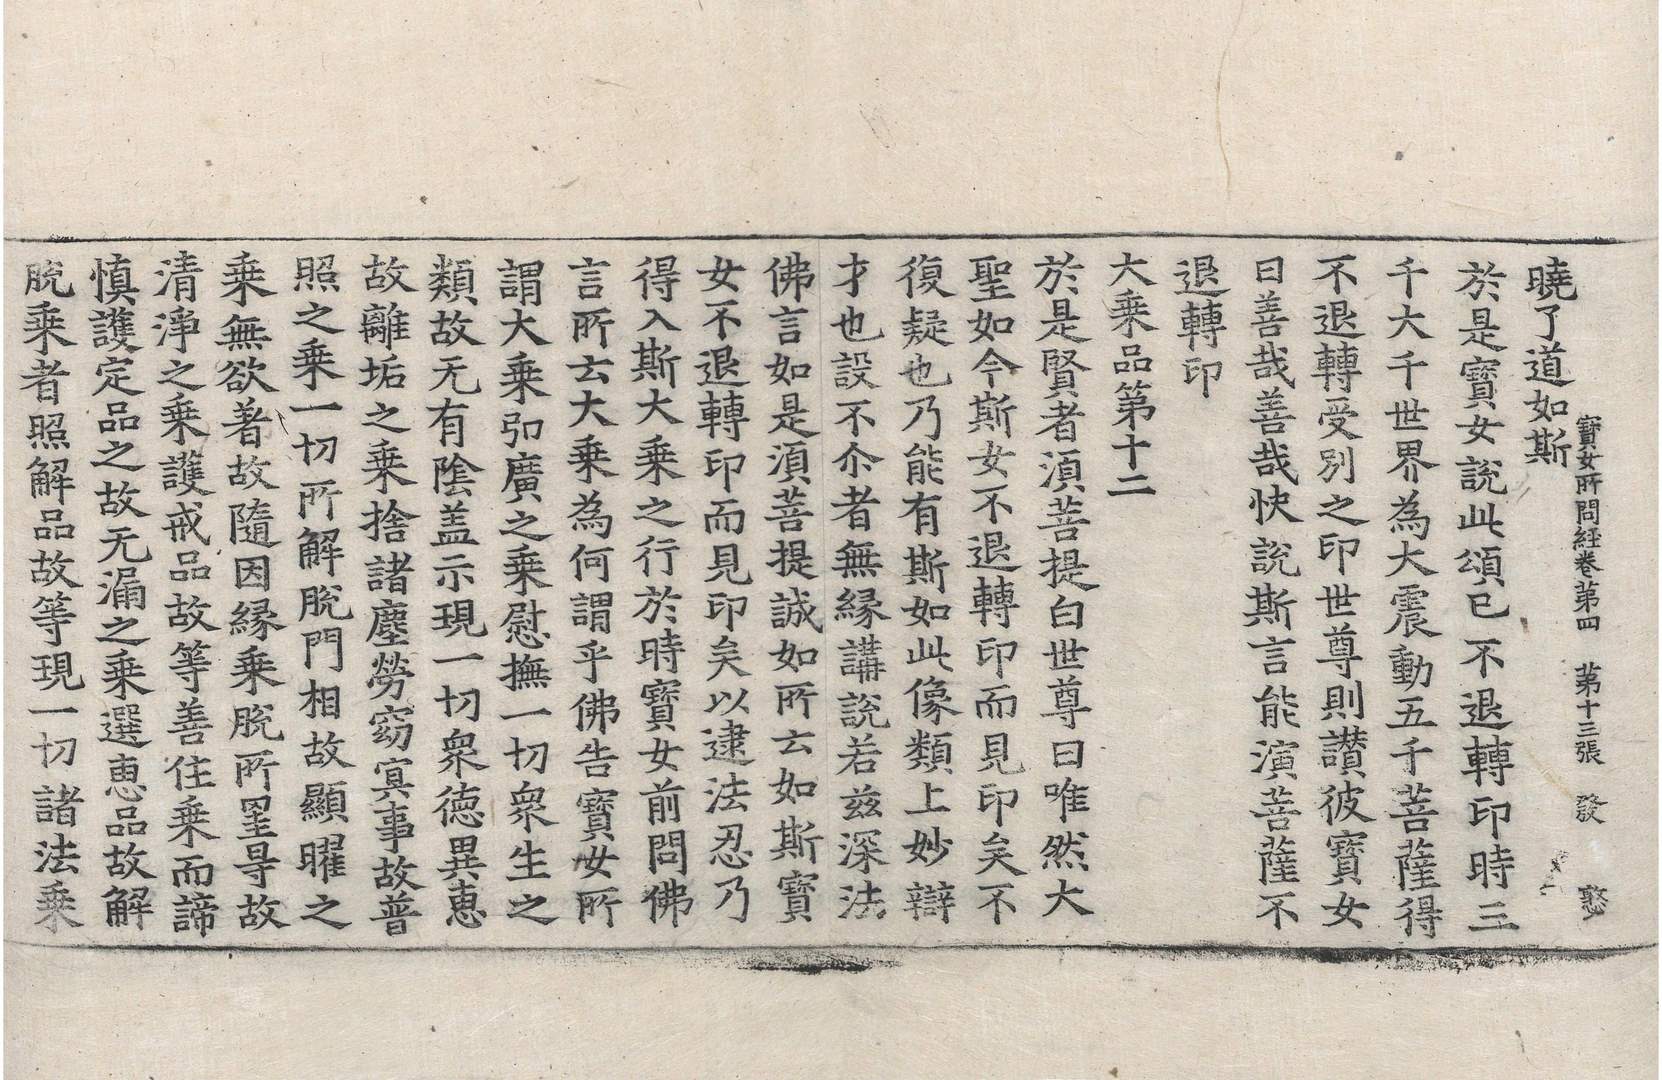 寶女所問經卷第四 第十三張 發 慜
曉了道如斯
於是寶女說此頌已不退轉印時三
千大千世界為大震動五千菩薩得
不退轉受別之印世尊則讃彼寶女
曰善哉善哉快說斯言能演菩薩不
退轉印
大乗品第十二
於是賢者湏菩提白世尊曰唯然大
聖如今斯女不退轉印而見印矣不
復疑也乃能有斯如此像類上妙辯
才也設不尒者無緣講說若兹深法
佛言如是湏菩提誠如所云如斯寶
女不退轉印而見印矣以逮法忍乃
得入斯大乗之行於時寶女前問佛
言所云大乗為何謂乎佛告寶女所
謂大乗弘廣之乗慰撫一切衆生之
類故无有陰盖示現一切衆德異恵
故離垢之乗捨諸塵勞窈冥事故普
照之乗一切所解脫門相故顯曜之
乗無欲著故隨因緣乗脫所罣㝵故
清淨之乗護戒品故等善住乗而諦
慎護定品之故无漏之乗選恵品故解
脫乗者照解品故等現一切諸法乗